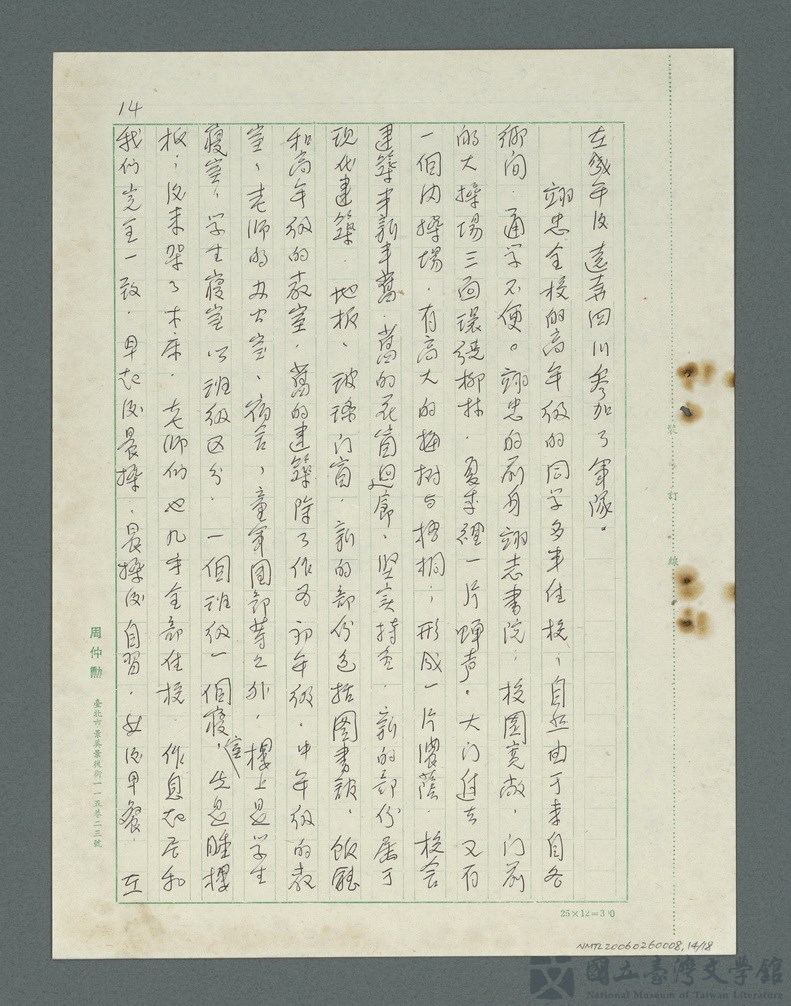 14
在幾年后遠奔四川参加了軍隊。
翊忠全校的高年级的同学多半住校，自然由于来自各
鄉间．通学不便。翊忠的前身翊志書院．校園寬敞，门前
的大操场三面環绕柳林．夏季裡一片蝉声。大门進去又有
一個内操场．有高大的梅树与梧桐；形成一片濃蔭．校舍
建築半新半舊．舊的花窗迴廊．坚实持重．新的部份属于
现代建築．地板、玻璃门窗．新的部份包括图書舘．飯廳
和高年级的教室．舊的建築除了作为初年级．中年级的教
室，老师的办公室、宿舍，童军团部等之外，樓上是学生
寝室，学生寝室以班级区分．一個班级一個寝室．先是睡樓
板；后来架了木床．老师们也几乎全部住校．作息起居和
我们完全一致．早起后晨操．晨操后自習．然后早餐．在
周仲勲
臺北市景美景後街一一五巷二三號
裝 訂 線
25×12=300
NMTL20060260008,14/18
國立臺灣文學館
National Museum of Taiwan Literature